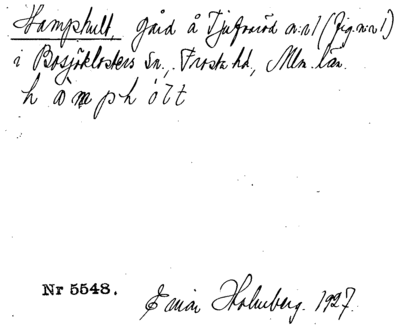 Hamphult, gård å Tjufaröd n:r 1 (fig. n:r 1)
i Bosjöklosters sn., Frosta hd, Mlm. län.
hamphòlt
Nr 5548.
Einar Holmberg. 1927.